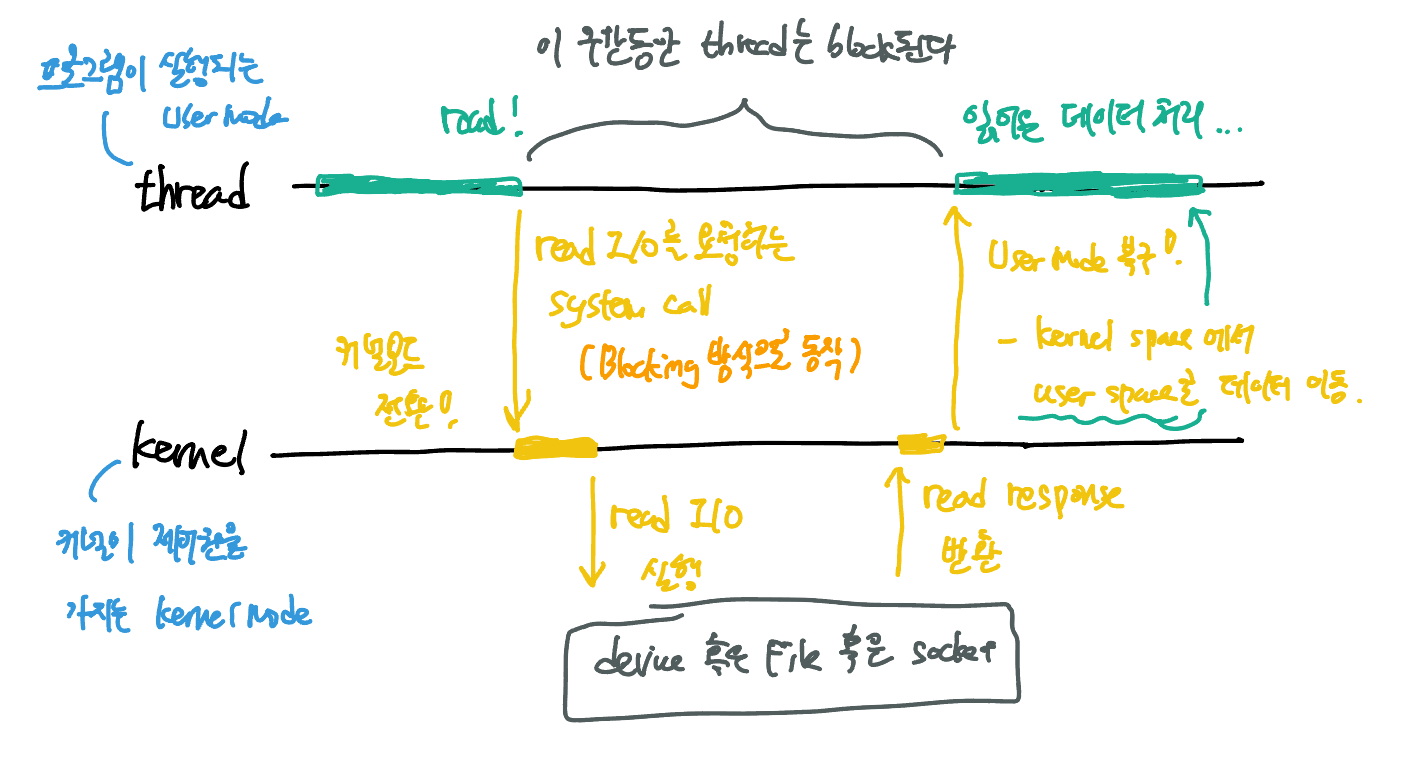 이 구간동안 thread는 block된다
프로그램이 실행되는
User Mode
read!
읽어온 데이터 처리...
thread
read I/O를 요청하는
system call
(Blocking 방식으로 동작)
커널모드
전환!
User Mode 복구!
- kernel space에서
user space로 데이터 이동.
kernel
커널이 제어권을
가지는 kernel Mode
read I/O
실행
read response
반환
device 혹은 File 혹은 socket